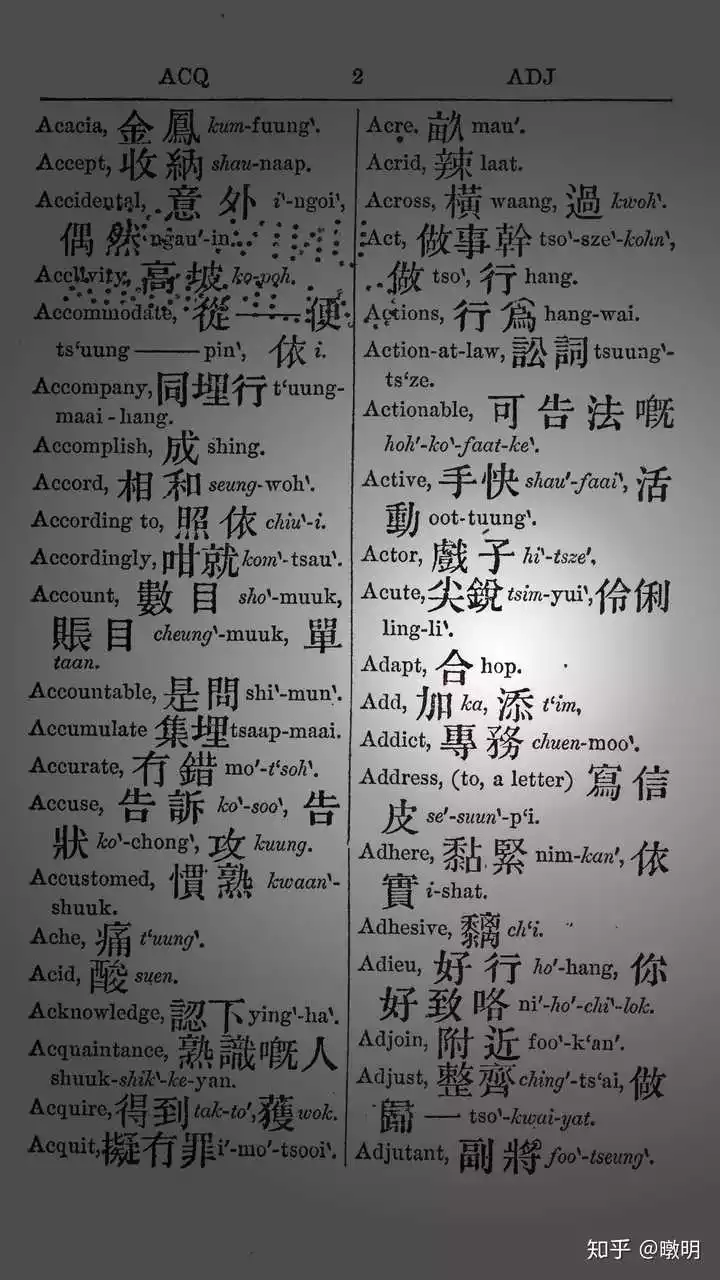 ACQ 2 ADJ
Acacia, 金鳳 kum-fuung‵.
Accept, 收納 shau-naap.
Accidental, 意外 i‵-ngoi‵,
偶然 ngau′-in.
Acclivity, 高坡 ko-poh.
Accommodate, 從——便
ts‘uung——pin‵, 依 i.
Accompany, 同埋行 t‘uung-
maai-hang.
Accomplish, 成 shing.
Accord, 相和 seung-woh‵.
According to, 照依 chiu‵-i.
Accordingly, 咁就 kom‵-tsau‵.
Account, 數目 sho‵-muuk,
賬目 cheung‵-muuk, 單
taan.
Accountable, 是問 shi‵-mun‵.
Accumulate 集埋 tsaap-maai.
Accurate, 冇錯 mo′-t‘soh‵.
Accuse, 告訴 ko‵-soo‵, 告
狀 ko‵-chong‵, 攻 kuung.
Accustomed, 慣熟 kwaan‵-
shuuk.
Ache, 痛 t‘uung‵.
Acid, 酸 suen.
Acknowledge, 認下 ying‵-ha‵.
Acquaintance, 熟識嘅人
shuuk-shik‵-ke-yan.
Acquire, 得到 tak-to′, 獲 wok.
Acquit, 擬冇罪 i′-mo′-tsooi‵.
Acre. 畝 mau′.
Acrid, 辣 laat.
Across, 橫 waang, 過 kwoh‵.
Act, 做事幹 tso‵-sze‵-kohn‵,
做 tso‵, 行 hang.
Actions, 行爲 hang-wai.
Action-at-law, 訟詞 tsuung‵-
ts‘ze.
Actionable, 可告法嘅
hoh′-ko‵-faat-ke‵.
Active, 手快 shau′-faai‵, 活
動 oot-tuung‵.
Actor, 戲子 hi‵-tsze′,
Acute, 尖銳 tsim-yui‵, 伶俐
ling-li‵.
Adapt, 合 hop.
Add, 加 ka, 添 t‘im,
Addict, 專務 chuen-moo‵.
Address, (to, a letter) 寫信
皮 se′-suun‵-p‘i.
Adhere, 黏緊 nim-kan′, 依
實 i-shat.
Adhesive, 黐 ch‘i.
Adieu, 好行 ho′-hang, 你
好致咯 ni′-ho′-chi‵-lok.
Adjoin, 附近 foo‵-k‘an′.
Adjust, 整齊 ching′-ts‘ai, 做
歸一 tso‵-kwai-yat.
Adjutant, 副將 foo‵-tseung‵.
知乎 @暾明